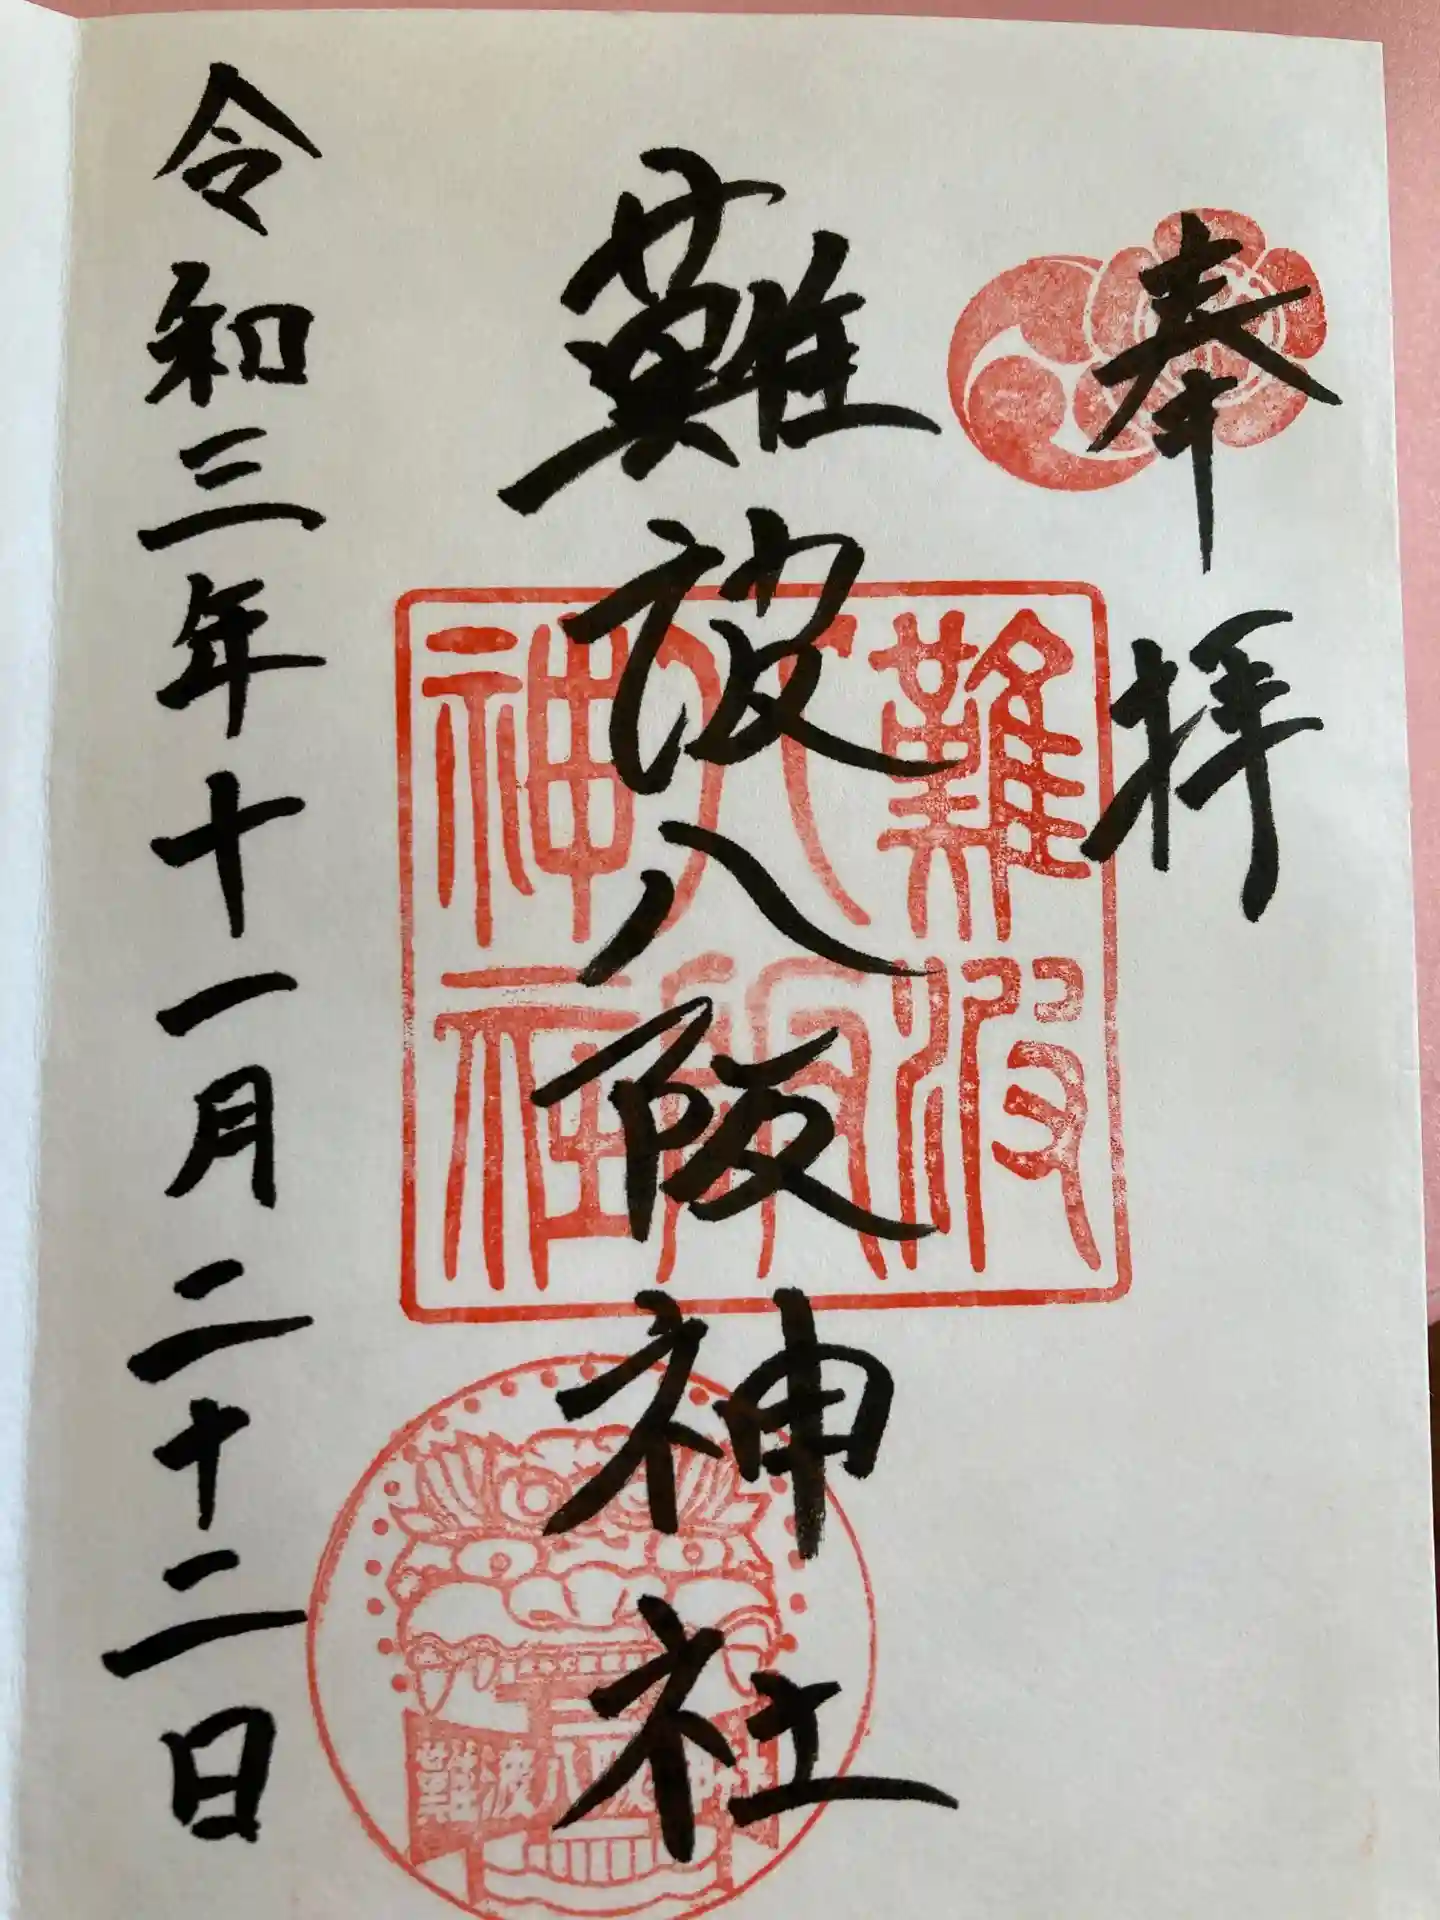 奉拝
難波八阪神社
令和三年十一月二十二日
難波
八阪
神社
難波八阪神社